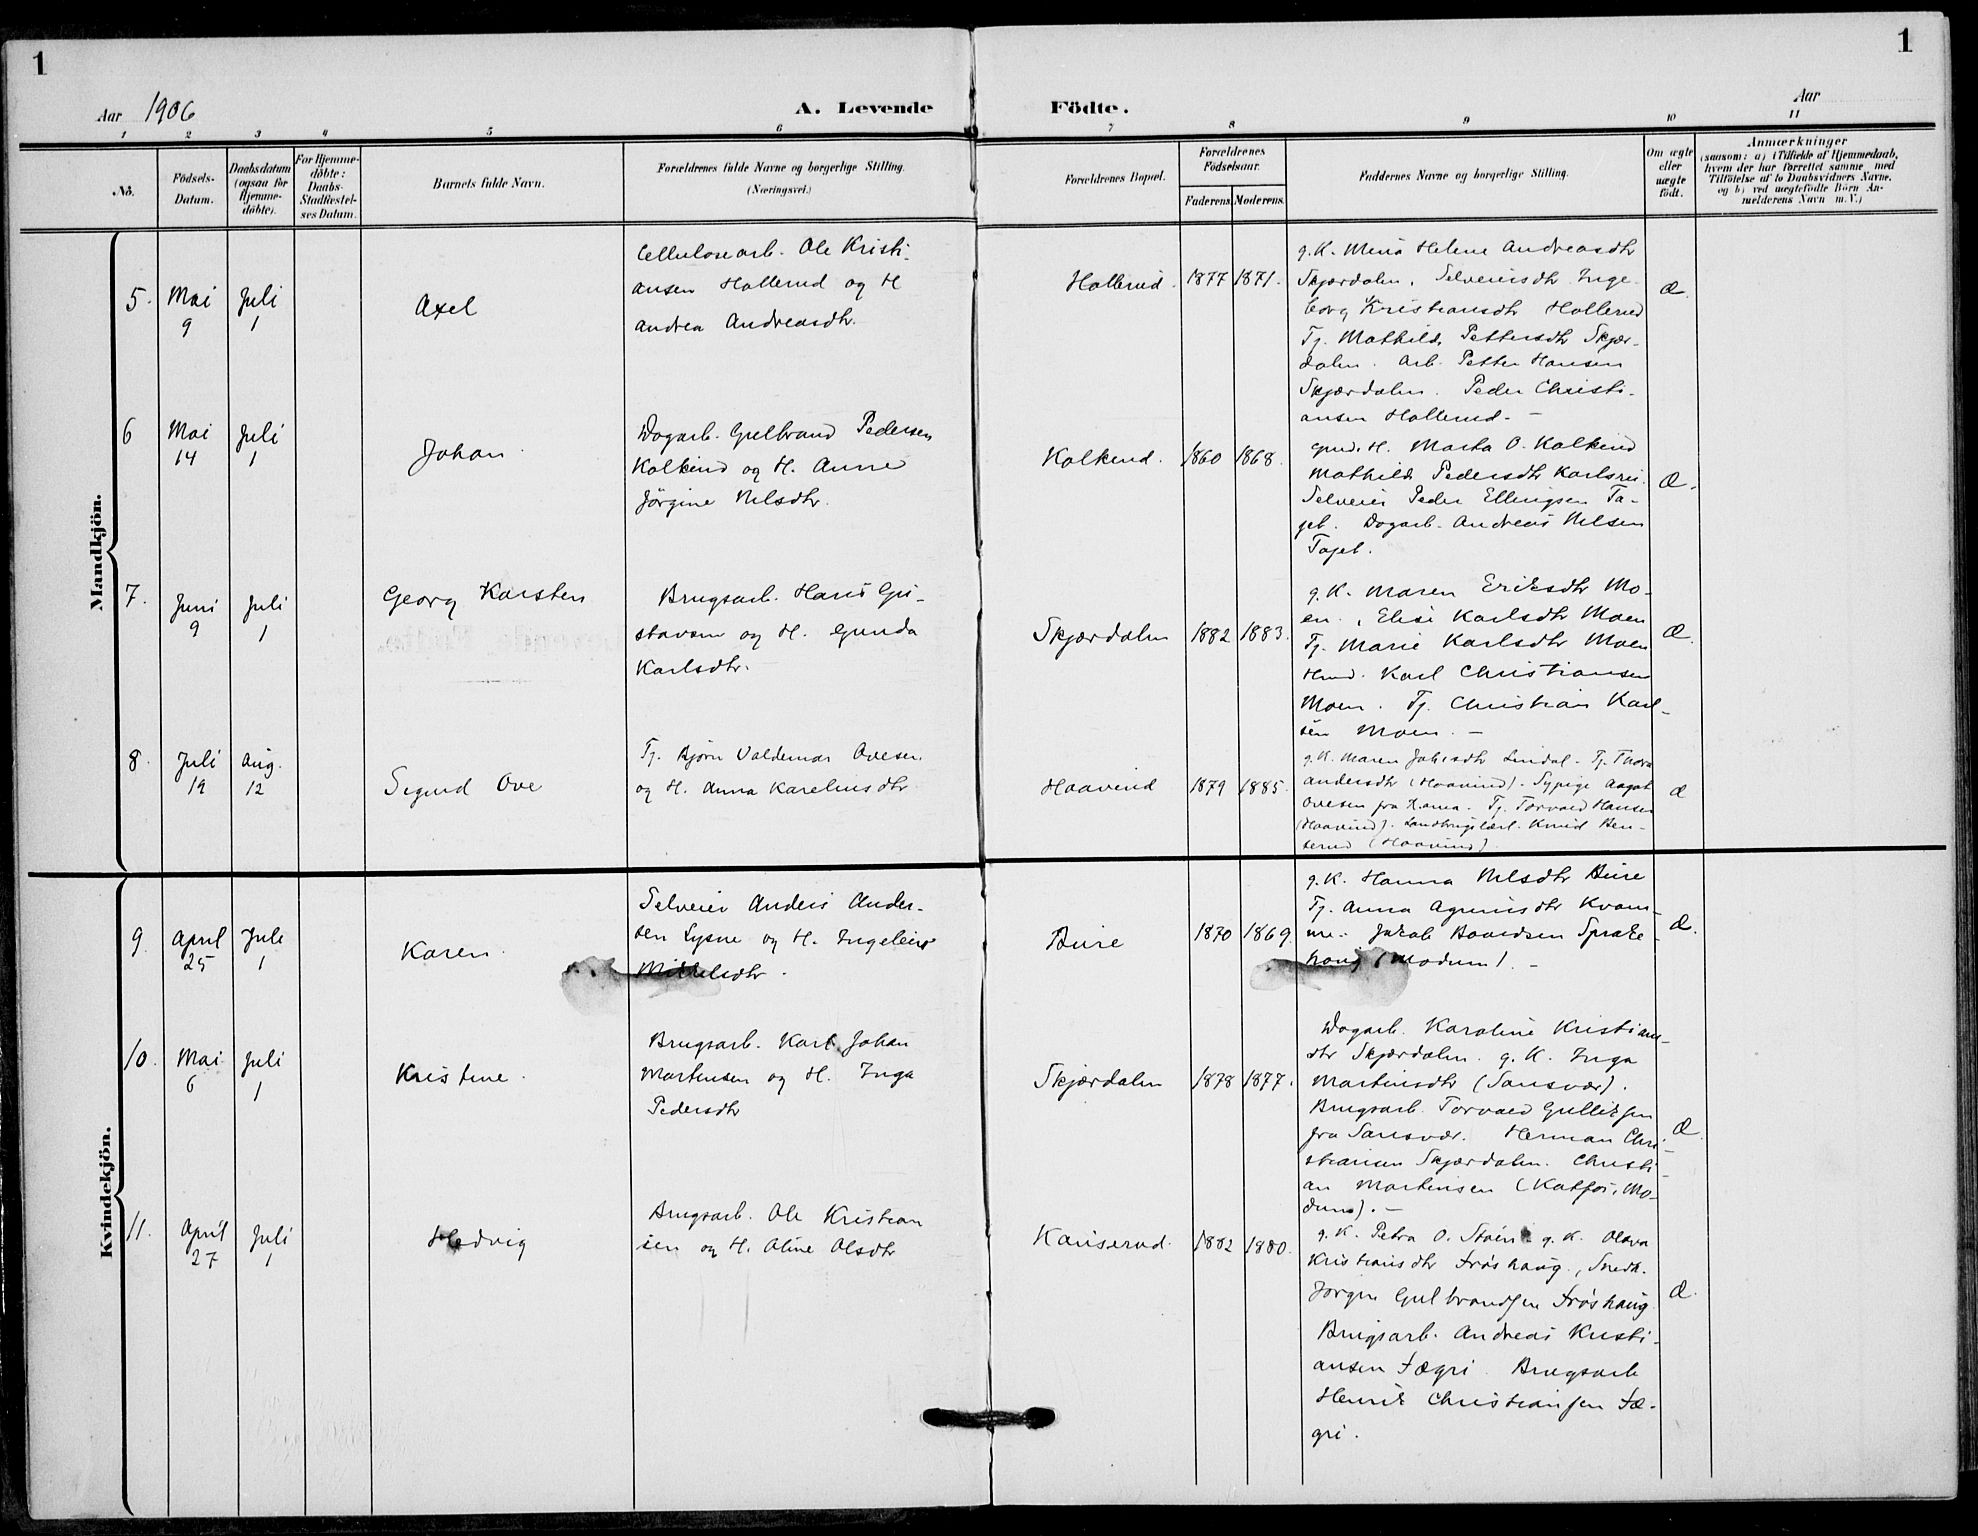 1
1
Aar 1906
A. Levende
Födte.
Aar
1 2 3 4 5 6 7 8 9 10 11
No.
Födsels-
Datum.
Daabsdatum
(ogsaa for
Hjemme-
döbte).
For Hjemme-
döbte:
Daabs-
Stadfæstel-
ses Datum.
Barnets fulde Navn.
Forældrenes fulde Navne og borgerlige Stilling.
(Næringsvei.)
Forældrenes Bopæl.
Forældrenes
Födselsaar.
Faderens
Moderens.
Faddernes Navne og borgerlige Stilling.
Om ægte
eller
uægte
födt.
Anmærkninger
(saasom: a) i Tilfælde af Hjemmedaab,
hvem der har forrettet samme med
Tilföielse af to Daabsvidners Navne,
og b) ved uægtefödte Börn An-
melderens Navn m. V.)
Mandkjön.
5.
Mai
9
Juli
1
Axel
Cellulosearb. Ole Kristi-
ansen Hollerud og H
Andrea Andreasdtr.
Hollerud
1877
1871.
g.K. Mina Helene Andreasdtr
Skjærdalen, Selveiersdtr Inge-
borg Kristiansdtr Hollerud
Tj. Mathilde Pettersdtr Skjær-
dalen. Arb. Petter Hansen
Skjærdalen. Peder Christi-
ansen Hollerud. -
Æ.
6
Mai
14
Juli
1
Johan
Dagarb. Gulbrand Pedersen
Kolkind og H. Anne
Jørgine Nilsdtr.
Kolkind.
1860
1868.
H. Marta O. Kolkind
Mathilde Pedersdtr
Selveier Peder Ellingsen
Dagarb. Andreas Nilsen
Æ.
7.
Juni
9
Juli
1
Georg Karsten
Brugsarb. Hans Gu-
stavsen og H. Gunda
Karlsdtr.
Skjærdalen
1882
1883.
g.K. Maren Eriksdtr Mo-
en., Elise Karlsdtr Moen
Tj. Marie Karlsdtr Moen
Karl Christiansen
Moen. Tj. Christian Karl-
sen Moen. -
Æ.
8.
Juli
19
Aug.
12
Sigurd Ove
Tj. Bjørn Valdemar Ovesen
og H. Anna Kareliusdtr
Haavind
1879
1885.
g.K. Maren Lindal. Tj. Thora
Andersdtr (Haavind). Sypige Aagot
Ovesen fra Tj. Torvald Hansen
(Haavind). Knud Ben-
terud (Haavind)
Æ
Kvindekjön.
9.
April
25
Juli
1
Karen.
Selveier Anders Ander-
sen Lysne og H. Ingeleiv
Mikkelsdtr.
Bure
1870
1869.
g.K. Hanna Nilsdtr Bure
Tj. Anna Kvam-
me. Jakob
(Modum). -
Æ.
10.
Mai
6
Juli
1
Kristine.
Brugsarb. Karl Johan
Martinsen og H. Inga
Pedersdtr
Skjærdalen
1878
1877.
Dagarb. Karoline Kristians-
dtr Skjærdalen. g.K. Inga
Martinsdtr (Sansvær).
Brugsarb. Torvald Gulliksen
fra Sansvær. Herman Chri-
stiansen Skjærdalen. Christi-
an Martinsen (Katfos, Mo-
dum). -
Æ.
11.
April
27
Juli
1
Hedvig
Brugsarb. Ole Kristian
sen og H. Oline Olsdtr
Kaniserud.
1882
1880.
g.K. Petra O. Støen g.K. Olava
Kristiansdtr Frøshaug, Snedk.
Jørgen Gulbrandsen Frøshaug
Brugsarb. Andreas Kristi-
ansen Fægri. Brugsarb
Henrik Christiansen Fæ-
gri.
Æ.